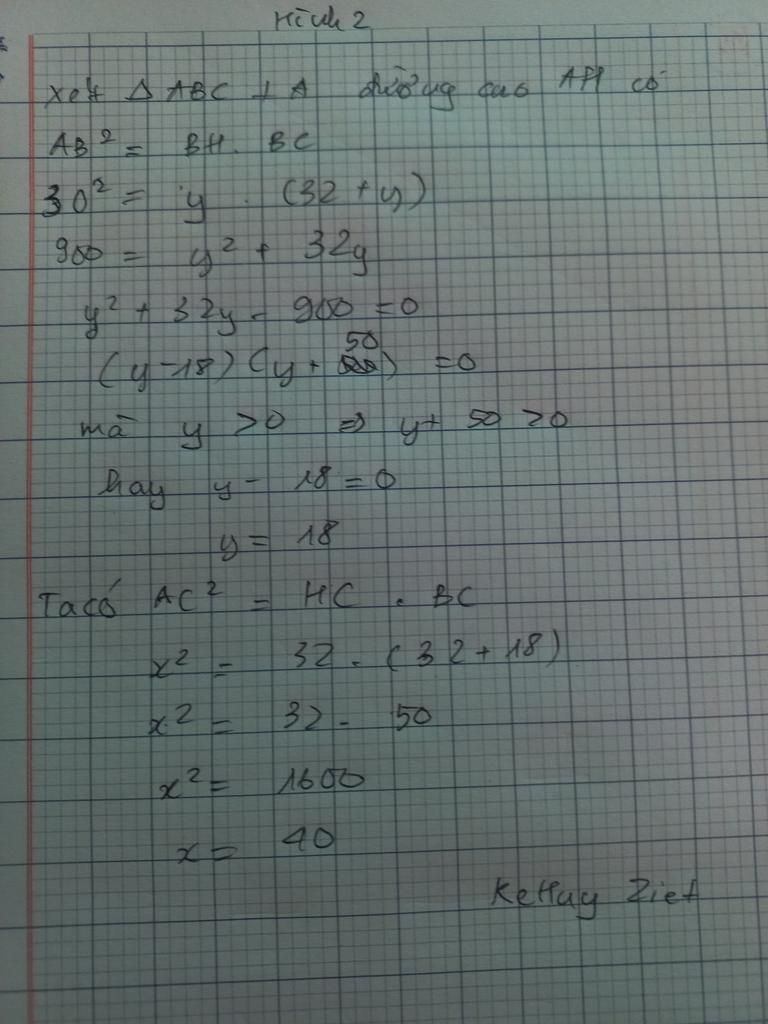 Hình 2
Xét Δ ABC ⊥ A đường cao AH có
AB² = BH . BC
30² = y . (32 + y)
900 = y² + 32y
y² + 32y - 900 = 0
(y - 18) (y + 50) = 0
mà y > 0 ⇒ y + 50 > 0
hay y - 18 = 0
y = 18
Ta có AC² = HC . BC
x² = 32 . (32 + 18)
x² = 32 . 50
x² = 1600
x = 40
KeHuy Ziet